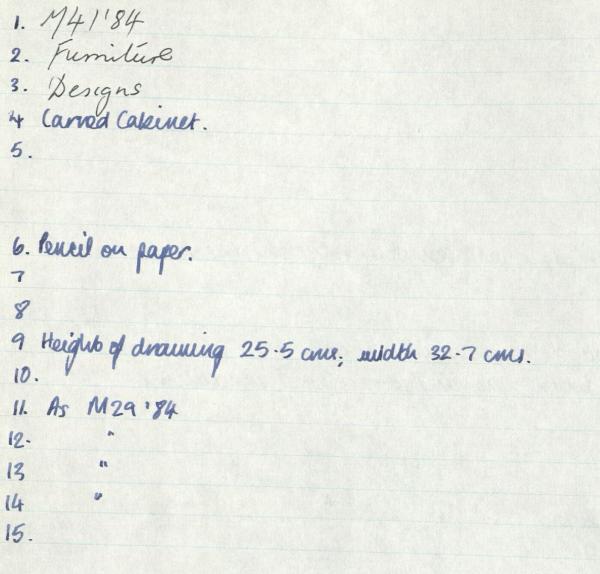 1. M41'84
2. Furniture
3. Designs
4 Carved Cabinet.
5.
6. Pencil on paper.
7
8
9 Height of drawing 25.5 cms; width 32.7 cms.
10.
11. As M29 '84
12. "
13 "
14 "
15.